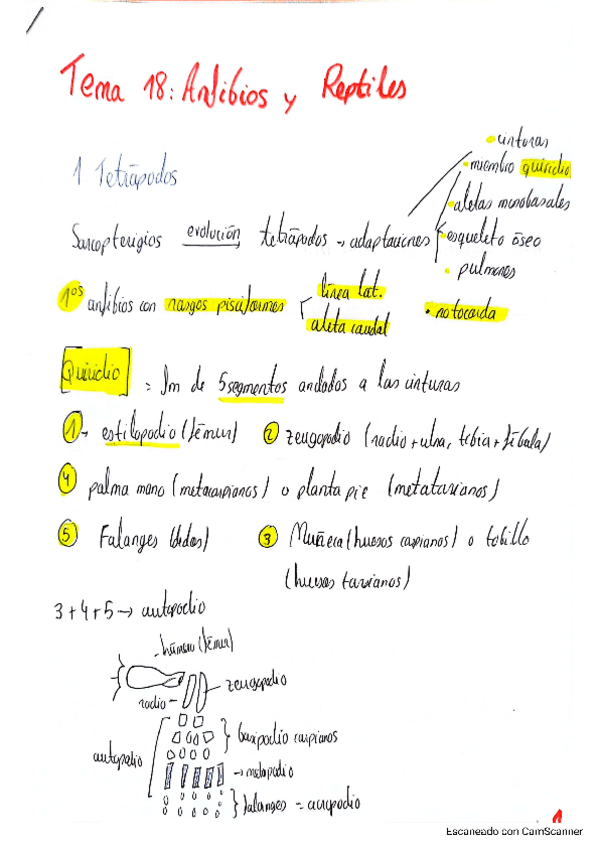 Tema 18: Anfibios y Reptiles
1 Tetrápodos
• cinturas
• miembro quiridio
• aletas monobasales
Sarcopterigios evolución tetrápodos → adaptaciones esqueleto óseo
• pulmones
1ºs anfibios con rasgos pisciformes línea lat. • notocorda
aleta caudal
Quiridio = Im de 5 segmentos anclados a las cinturas
1 → estilopodio (fémur) 2 zeugopodio (radio + ulna, tibia + fíbula)
4 palma mano (metacarpianos) o planta pie (metatarsianos)
5 Falanges (dedos) 3 Muñeca (huesos carpianos) o tobillo
(huesos tarsianos)
3+4+5 → autopodio
húmero (fémur)
zeugopodio
radio
basipodio carpianos
autopodio
→ metapodio
falanges = acropodio
1
Escaneado con CamScanner